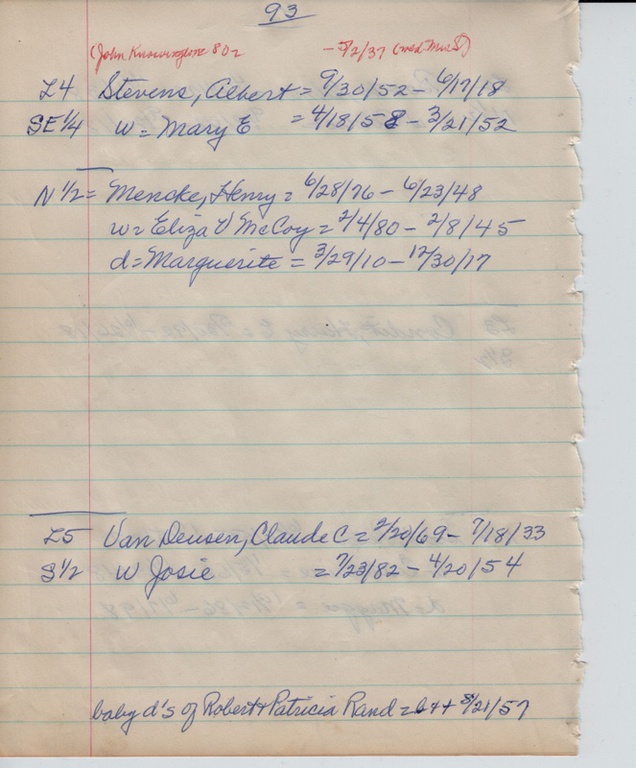 93
(John Knowingtone 80 - 5/2/37 (wed Mrs S)
L4 Stevens, Albert = 9/30/52 - 6/17/18
SE 1/4 w = Mary E = 4/18/58 - 3/21/52
N 1/2 = Mencke, Henry = 6/28/76 - 6/23/48
w = Eliza V McCoy = 2/4/80 - 2/8/45
d = Marguerite = 3/29/10 - 12/30/17
L5 Van Deusen, Claude C = 2/20/69 - 7/18/33
S 1/2 w Josie = 7/23/82 - 4/20/54
baby d's of Robert + Patricia Rand = b + + 8/21/57